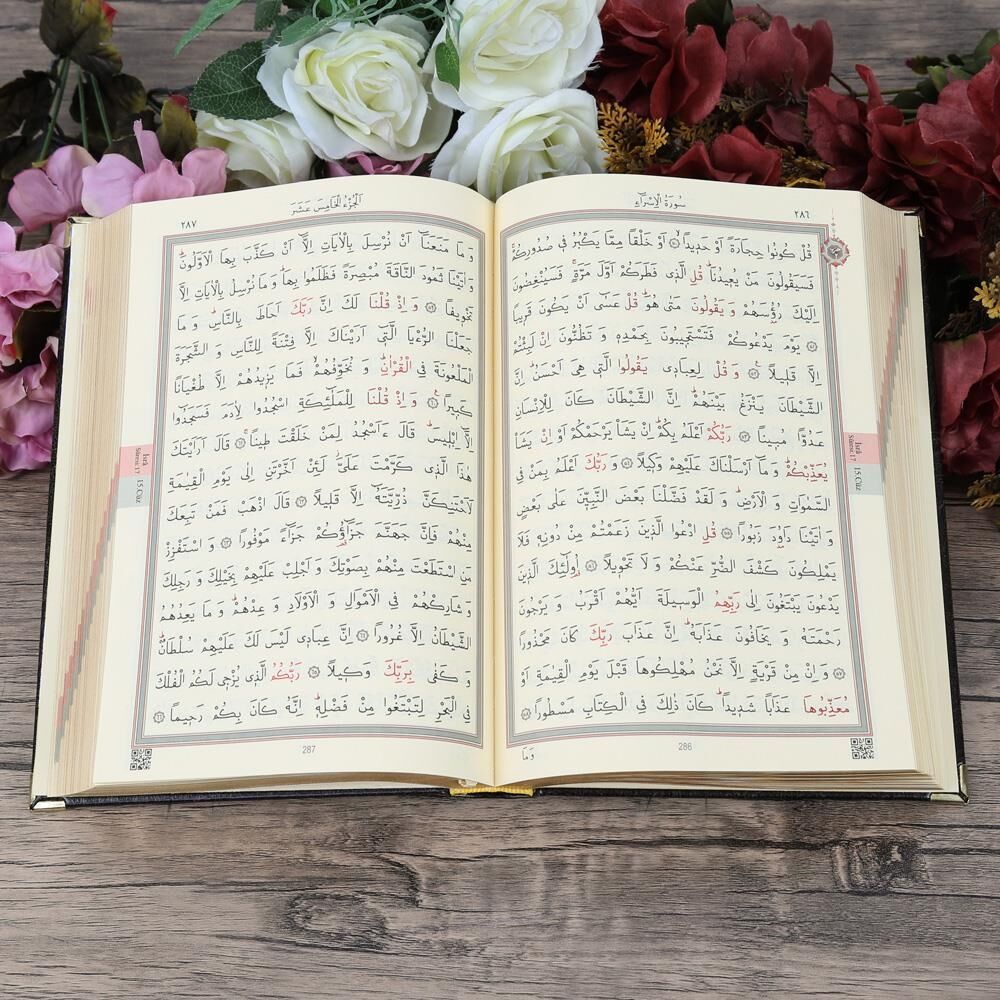 سُورَةُ الْاِسْرَاءِ
٢٨٦
قُلْ كُونُوا حِجَارَةً اَوْ حَد۪يدًاۙ ۝ اَوْ خَلْقًا مِمَّا يَكْبُرُ ف۪ي صُدُورِكُمْۚ
فَسَيَقُولُونَ مَنْ يُع۪يدُنَاۜ قُلِ الَّذ۪ي فَطَرَكُمْ اَوَّلَ مَرَّةٍۚ فَسَيُنْغِضُونَ
اِلَيْكَ رُؤُ۫سَهُمْ وَ يَقُولُونَ مَتٰى هُوَۜ قُلْ عَسٰٓى اَنْ يَكُونَ قَر۪يبًا
۝ يَوْمَ يَدْعُوكُمْ فَتَسْتَج۪يبُونَ بِحَمْدِه۪ وَ تَظُنُّونَ اِنْ لَبِثْتُمْ
اِلَّا قَل۪يلًا۟ ۝ وَ قُلْ لِعِبَاد۪ي يَقُولُوا الَّت۪ي هِيَ اَحْسَنُۜ اِنَّ
الشَّيْطَانَ يَنْزَغُ بَيْنَهُمْۜ اِنَّ الشَّيْطَانَ كَانَ لِلْاِنْسَانِ
عَدُوًّا مُب۪ينًا ۝ رَبُّكُمْ اَعْلَمُ بِكُمْۜ اِنْ يَشَأْ يَرْحَمْكُمْ اَوْ اِنْ يَشَأْ
يُعَذِّبْكُمْۜ وَ مَٓا اَرْسَلْنَاكَ عَلَيْهِمْ وَك۪يلًا ۝ وَ رَبُّكَ اَعْلَمُ بِمَنْ فِي
السَّمٰوَاتِ وَ الْاَرْضِۜ وَ لَقَدْ فَضَّلْنَا بَعْضَ النَّبِيّ۪نَ عَلٰى بَعْضٍ
وَ اٰتَيْنَا دَاوُ۫دَ زَبُورًا ۝ قُلِ ادْعُوا الَّذ۪ينَ زَعَمْتُمْ مِنْ دُونِه۪ فَلَا
يَمْلِكُونَ كَشْفَ الضُّرِّ عَنْكُمْ وَ لَا تَحْو۪يلًا ۝ اُو۬لٰٓئِكَ الَّذ۪ينَ
يَدْعُونَ يَبْتَغُونَ اِلٰى رَبِّهِمُ الْوَس۪يلَةَ اَيُّهُمْ اَقْرَبُ وَ يَرْجُونَ
رَحْمَتَهُ وَ يَخَافُونَ عَذَابَهُۜ اِنَّ عَذَابَ رَبِّكَ كَانَ مَحْذُورًا
۝ وَ اِنْ مِنْ قَرْيَةٍ اِلَّا نَحْنُ مُهْلِكُوهَا قَبْلَ يَوْمِ الْقِيٰمَةِ اَوْ
مُعَذِّبُوهَا عَذَابًا شَد۪يدًاۜ كَانَ ذٰلِكَ فِي الْكِتَابِ مَسْطُورًا ۝
وَمَا
286
İsrâ
Sûresi:17
15.Cüz
اَلْجُزْءُ الْخَامِسَ عَشَرَ
٢٨٧
وَ مَا مَنَعَنَٓا اَنْ نُرْسِلَ بِالْاٰيَاتِ اِلَّٓا اَنْ كَذَّبَ بِهَا الْاَوَّلُونَۜ
وَ اٰتَيْنَا ثَمُودَ النَّاقَةَ مُبْصِرَةً فَظَلَمُوا بِهَاۜ وَ مَا نُرْسِلُ بِالْاٰيَاتِ اِلَّا
تَخْو۪يفًا ۝ وَ اِذْ قُلْنَا لَكَ اِنَّ رَبَّكَ اَحَاطَ بِالنَّاسِۜ وَ مَا
جَعَلْنَا الرُّءْيَا الَّت۪ٓي اَرَيْنَاكَ اِلَّا فِتْنَةً لِلنَّاسِ وَ الشَّجَرَةَ
الْمَلْعُونَةَ فِي الْقُرْاٰنِۜ وَ نُخَوِّفُهُمْۙ فَمَا يَز۪يدُهُمْ اِلَّا طُغْيَانًا
كَب۪يرًا۟ ۝ وَ اِذْ قُلْنَا لِلْمَلٰٓئِكَةِ اسْجُدُوا لِاٰدَمَ فَسَجَدُٓوا
اِلَّٓا اِبْل۪يسَۜ قَالَ ءَاَسْجُدُ لِمَنْ خَلَقْتَ ط۪ينًاۚ ۝ قَالَ اَرَاَيْتَكَ
هٰذَا الَّذ۪ي كَرَّمْتَ عَلَيَّۘ لَئِنْ اَخَّرْتَنِ اِلٰى يَوْمِ الْقِيٰمَةِ
لَاَحْتَنِكَنَّ ذُرِّيَّتَهُٓ اِلَّا قَل۪يلًا ۝ قَالَ اذْهَبْ فَمَنْ تَبِعَكَ
مِنْهُمْ فَاِنَّ جَهَنَّمَ جَزَٓاؤُ۬كُمْ جَزَٓاءً مَوْفُورًا ۝ وَ اسْتَفْزِزْ
مَنِ اسْتَطَعْتَ مِنْهُمْ بِصَوْتِكَ وَ اَجْلِبْ عَلَيْهِمْ بِخَيْلِكَ وَ رَجِلِكَ
وَ شَارِكْهُمْ فِي الْاَمْوَالِ وَ الْاَوْلَادِ وَ عِدْهُمْۜ وَ مَا يَعِدُهُمُ
الشَّيْطَانُ اِلَّا غُرُورًا ۝ اِنَّ عِبَاد۪ي لَيْسَ لَكَ عَلَيْهِمْ سُلْطَانٌۜ
وَ كَفٰى بِرَبِّكَ وَك۪يلًا ۝ رَبُّكُمُ الَّذ۪ي يُزْج۪ي لَكُمُ الْفُلْكَ
فِي الْبَحْرِ لِتَبْتَغُوا مِنْ فَضْلِه۪ۜ اِنَّهُ كَانَ بِكُمْ رَح۪يمًا ۝
287
İsrâ
Sûresi:17
15.Cüz